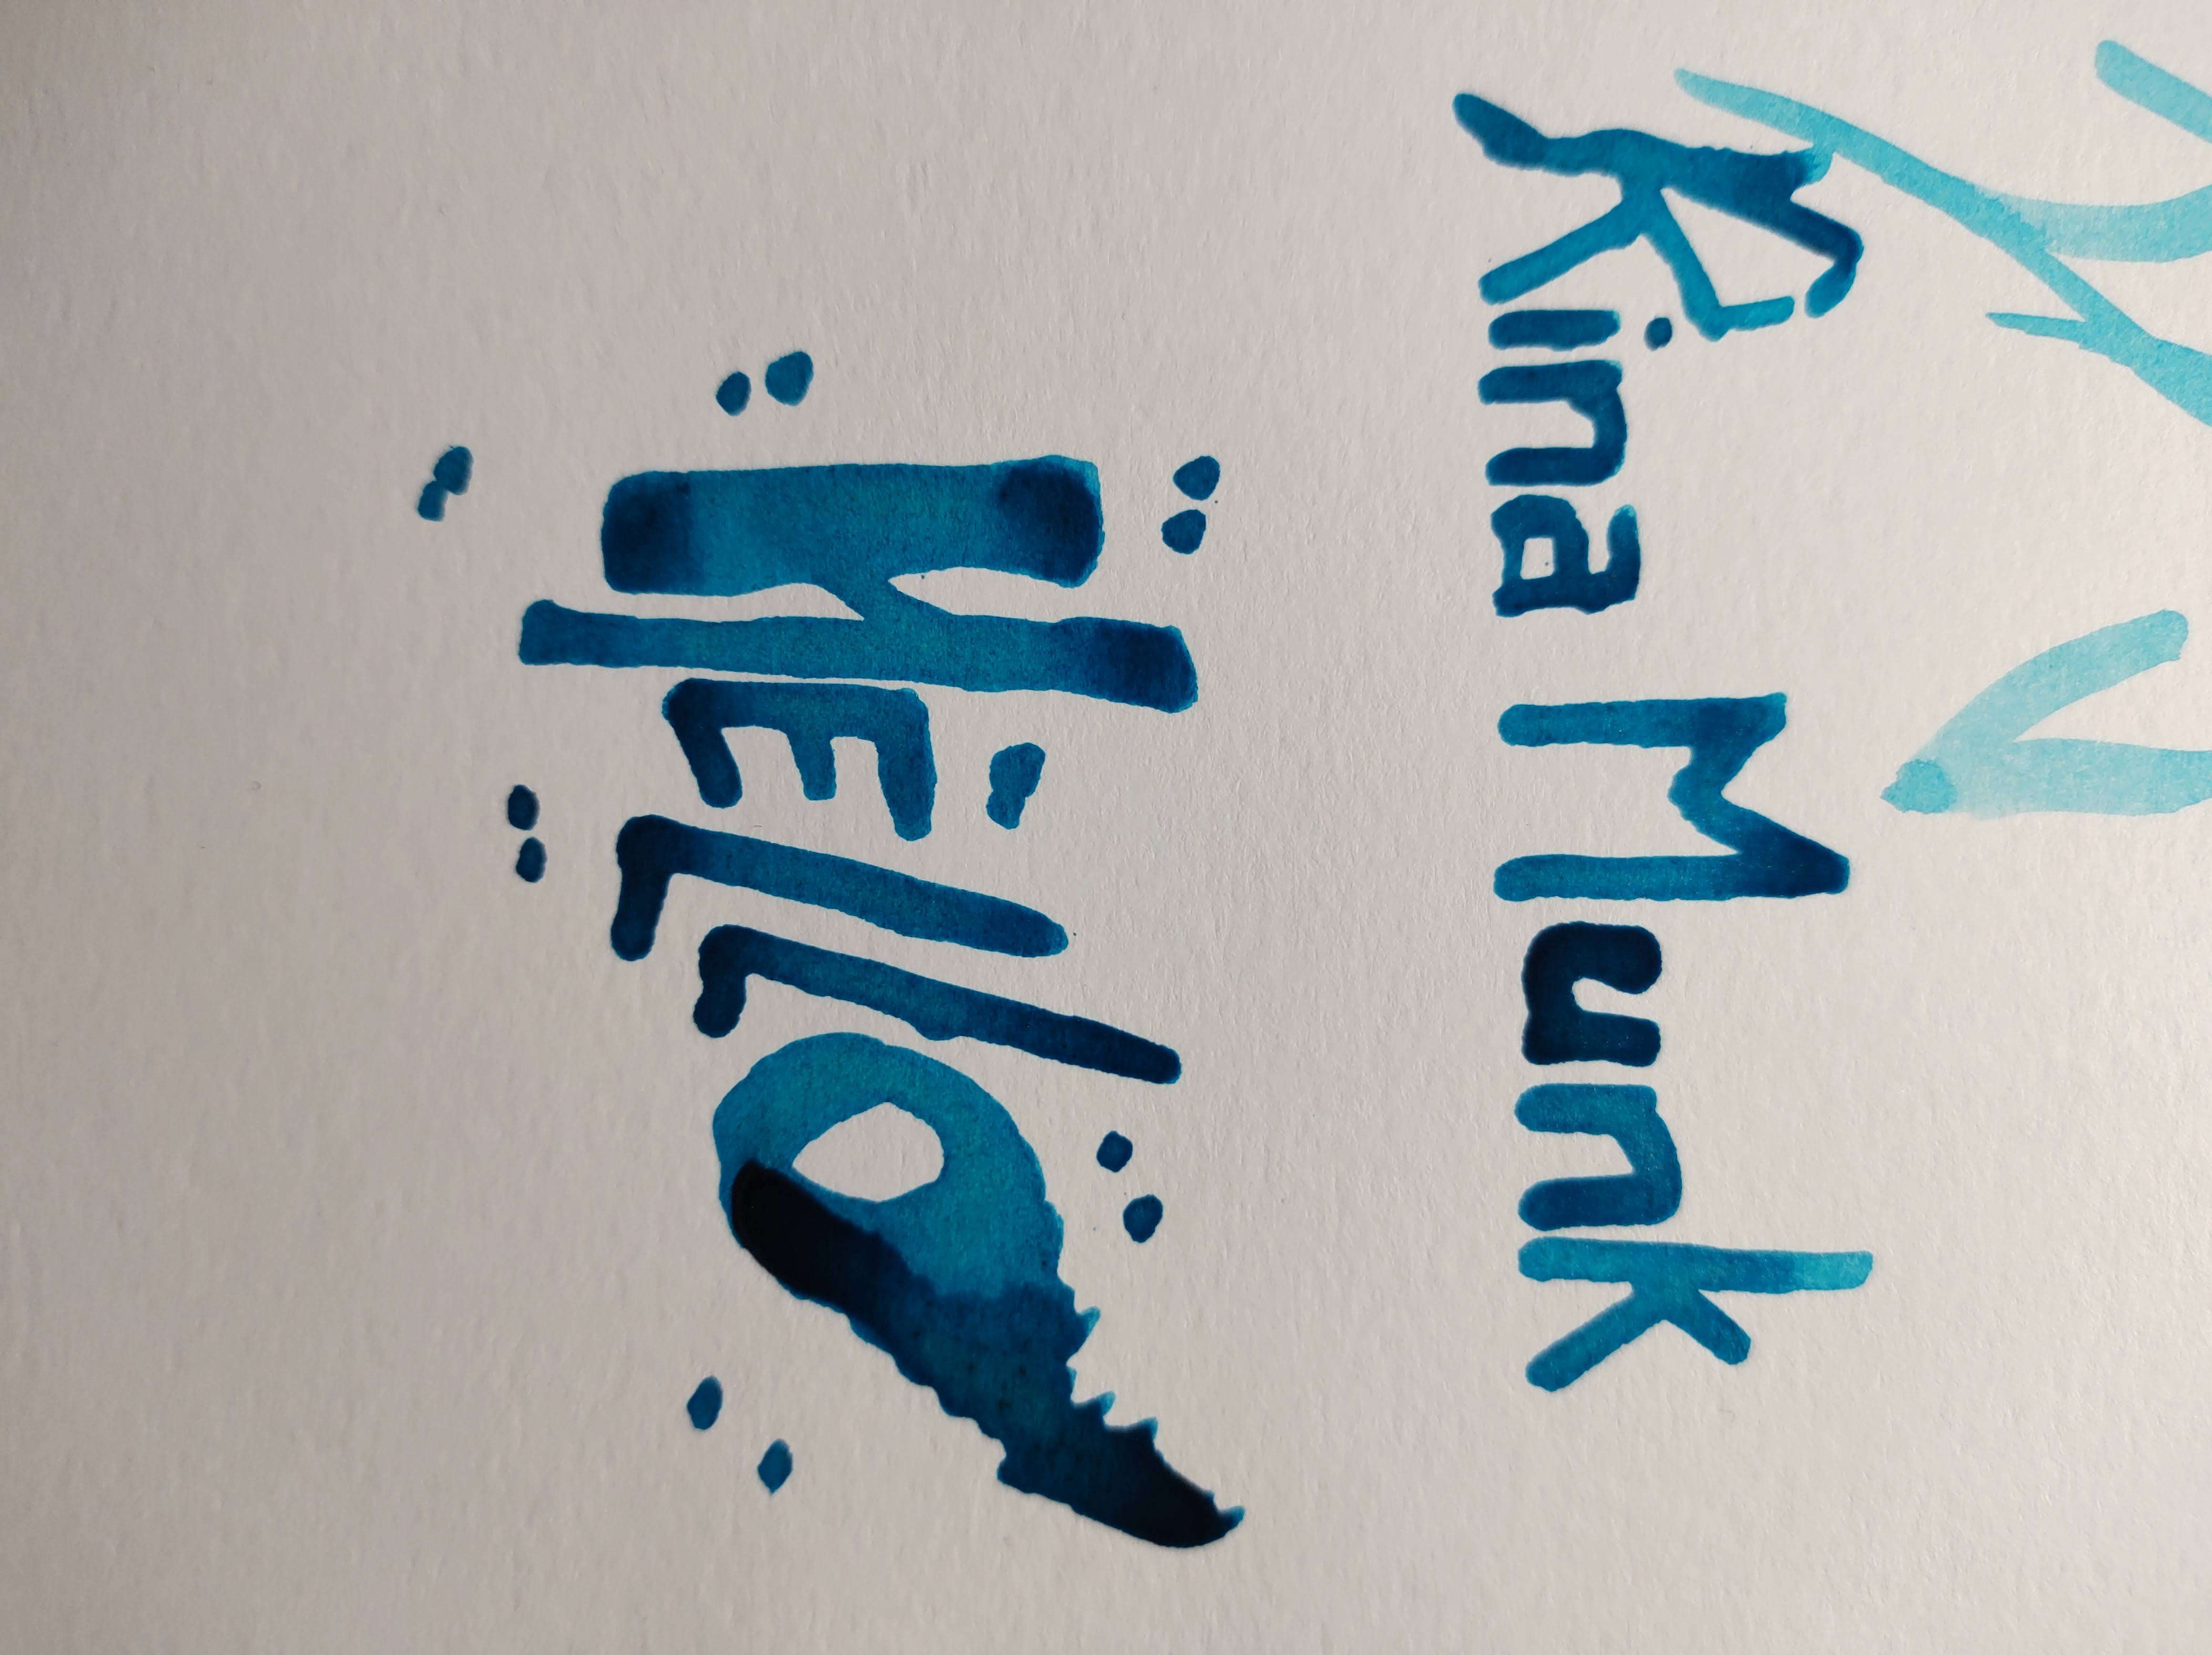 Rina Munk
HELLO